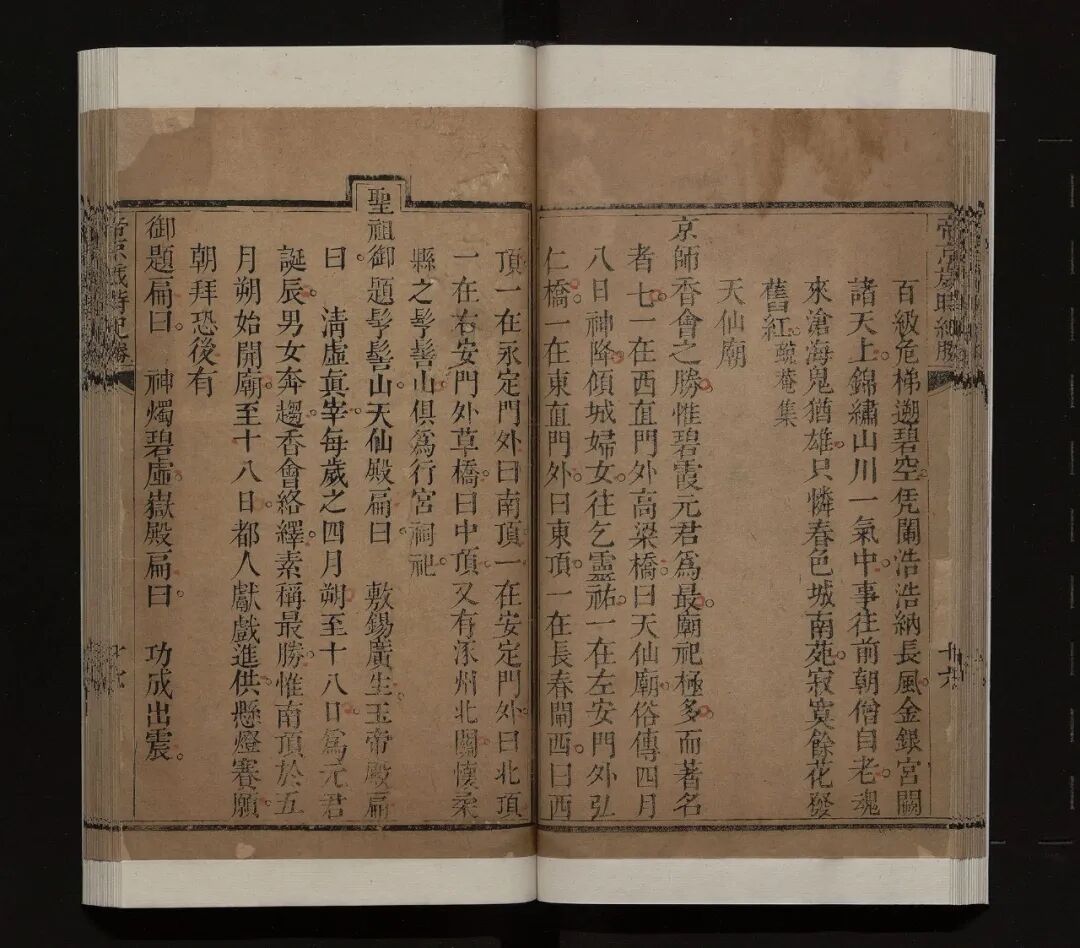 百級危梯遡碧空凭闌浩浩納長風金銀宮闕
諸天上錦繡山川一氣中事往前朝僧自老魂
來滄海鬼猶雄只憐春色城南苑寂寞餘花發
舊紅疏菴集
天仙廟
京師香會之勝惟碧霞元君爲最廟祀極多而著名
者七一在西直門外高梁橋曰天仙廟俗傳四月
八日神降傾城婦女往乞靈祐一在左安門外弘
仁橋一在東直門外曰東頂一在長春閘西曰西
頂一在永定門外曰南頂一在安定門外曰北頂
一在右安門外草橋曰中頂又有涿州北關懷柔
縣之髽髻山俱爲行宮祠祀
聖祖御題髽髻山天仙殿扁曰 敷錫廣生玉帝殿扁
曰 清虛眞宰每歲之四月朔至十八日爲元君
誕辰男女奔趨香會絡繹素稱最勝惟南頂於五
月朔始開廟至十八日都人獻戲進供懸燈賽願
朝拜恐後有
御題扁曰 神燭碧虛嶽殿扁曰 功成出震
帝京歲時紀勝